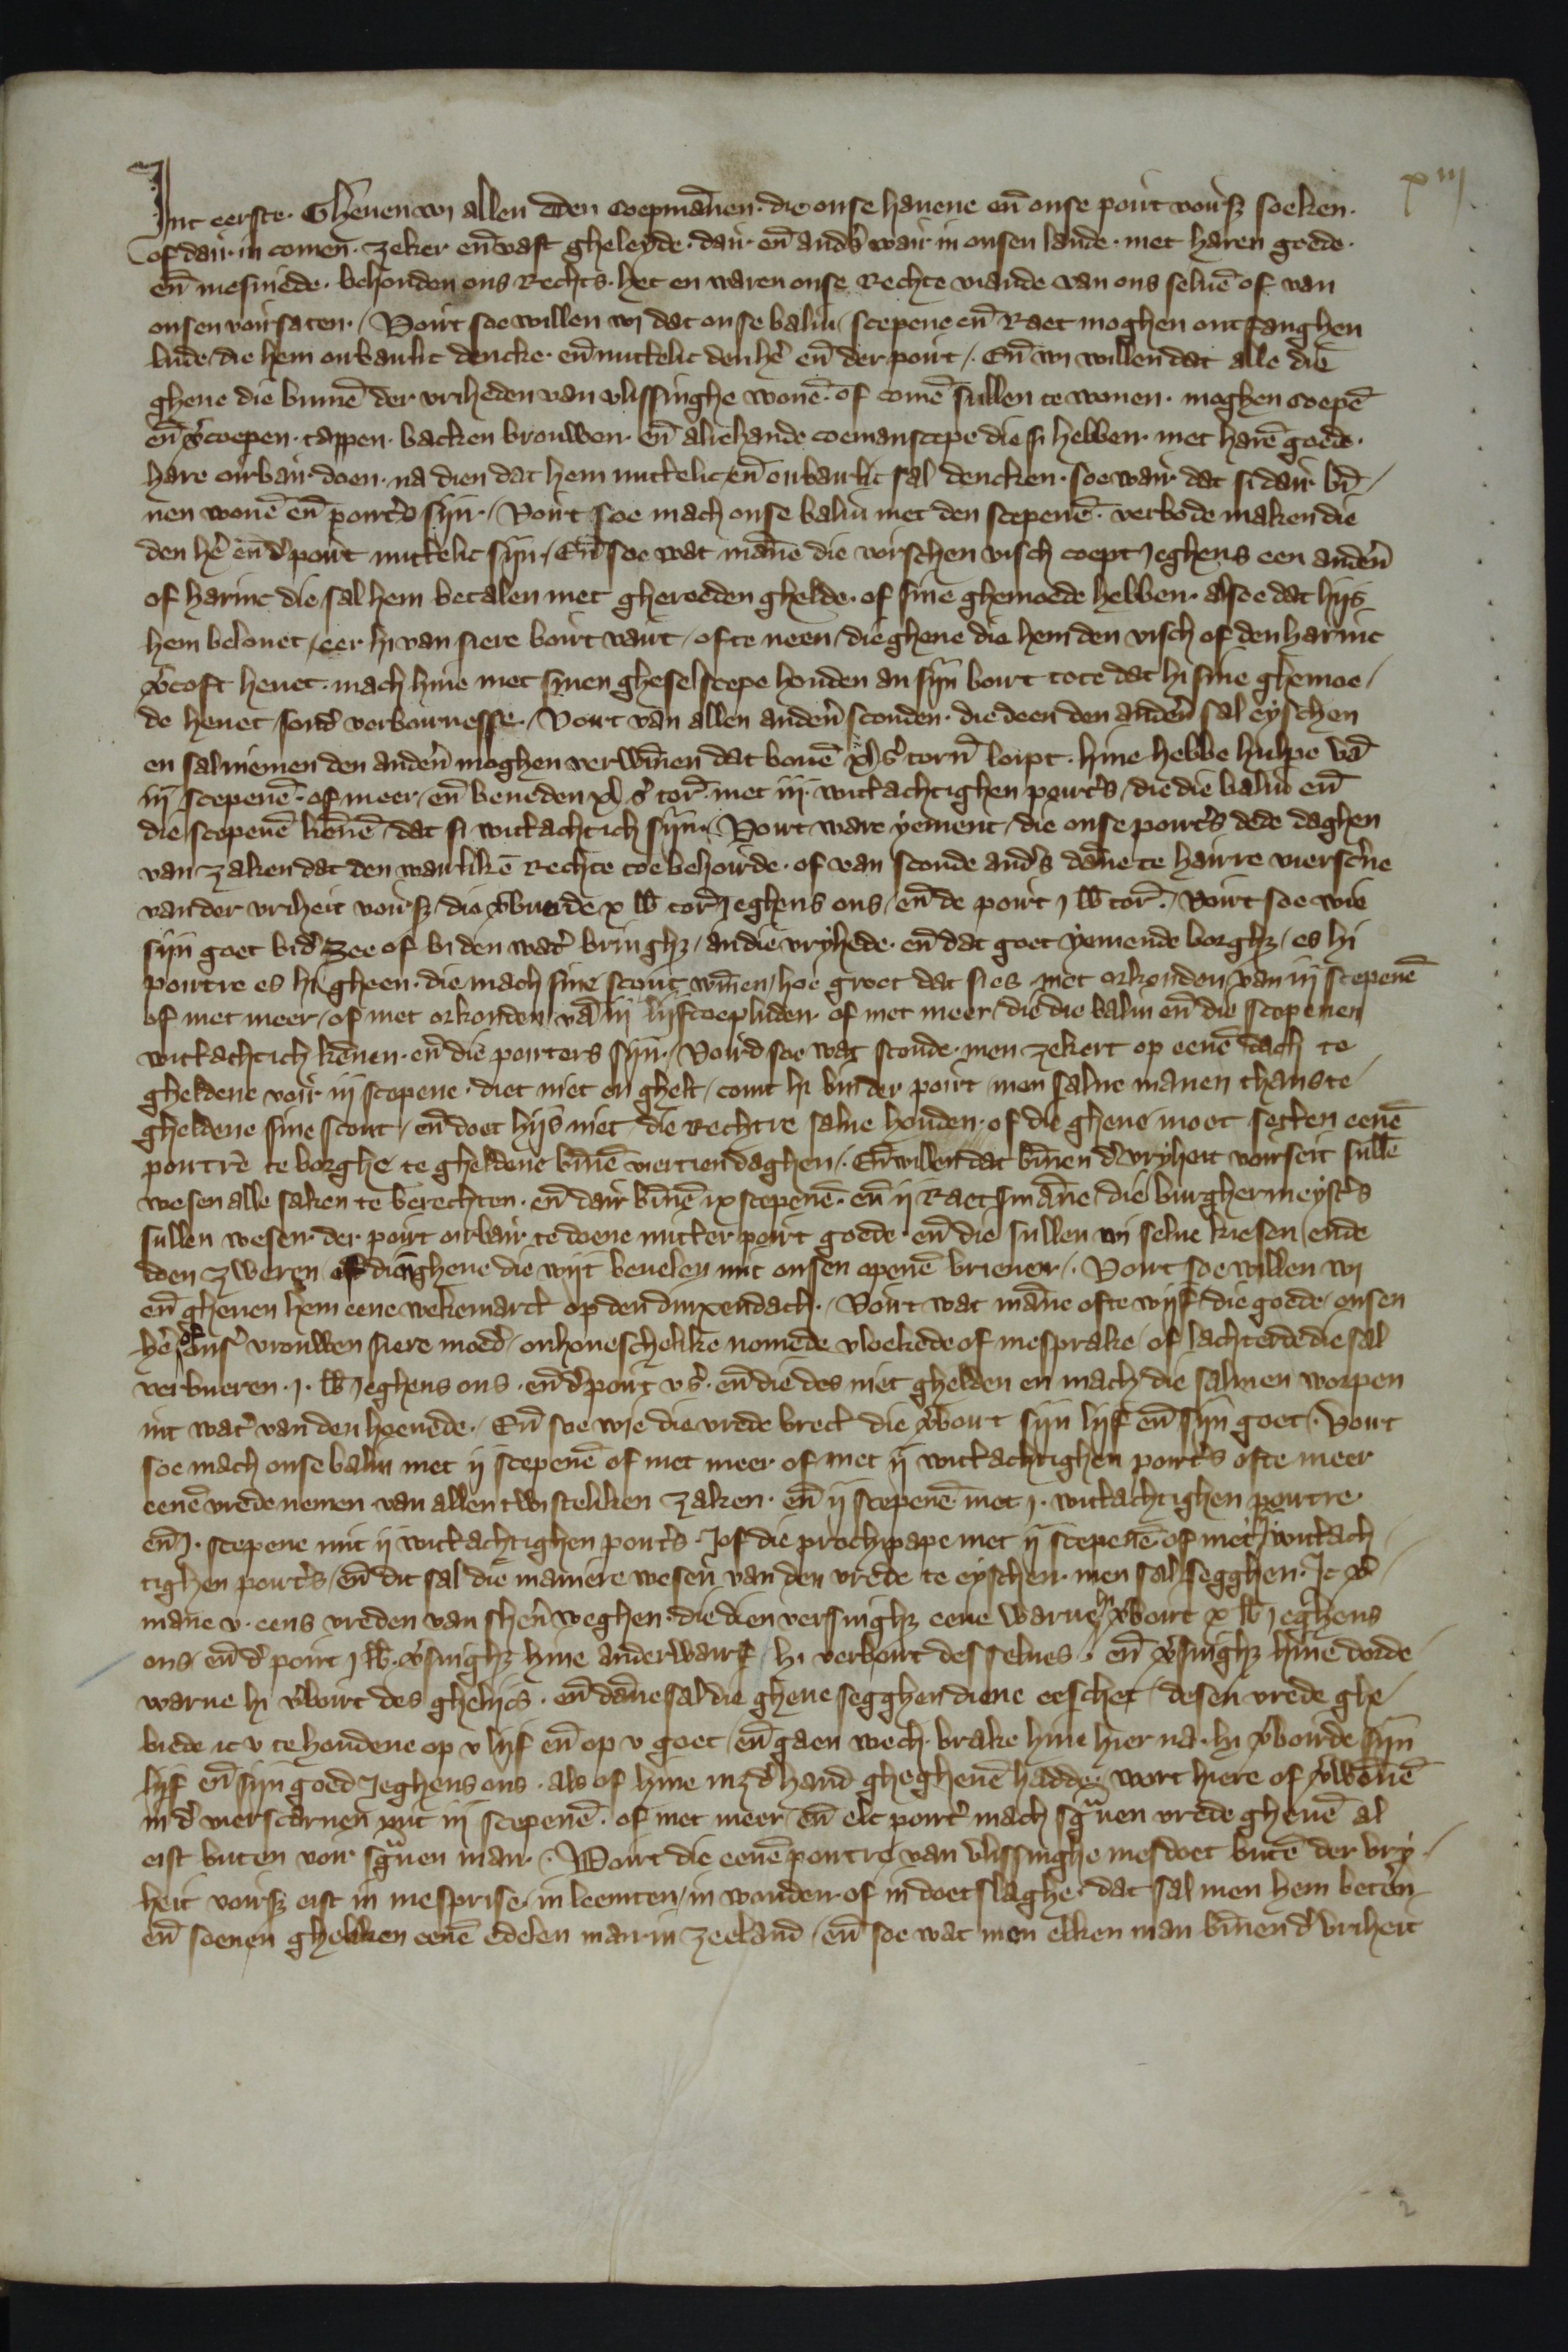 xiij
Int eerste. Gheuen wij allen dden coepmānen. die onse hauene eñ onse poirt voirsz soeken.
of dair in comen. zeker eñ vast gheleyde. dair eñ anders wair in onsen lande. met haren goede.
eñ mesniede. behouden ons Rechts. het en waren onse Rechte viande van ons seluē of van
onsen voirsaten. / Voirt soe willen wij dat onse baliu / scepene eñ Raet moghen ontfanghen
lude / die hem oirbairlic dencke. eñ nuttelic den hē eñ der poirt /. Eñ wij willen dat alle die
ghene die binnē der vriheden van vlissinghe wonē. of comē sullen te wonen. moghen coepē
eñ v'coepen. tappen. backen brouwen. eñ alrehande coemanscepe die si hebben. met harē goede.
hare oirbair doen. na dien dat hem nuttelic / eñ oirbairlic sal dencken. soe wair dat si dair bī /
nen wonē eñ poirt's sijn. / Voirt soe mach onse baliu met den scepenē. verbode maken die
den hē eñ d' poirt nuttelic sijn. / Eñ soe wat manne die verschen visch coept jeghens een andern
of harinc die sal hem betalen met ghereeden ghelde. of sine ghemoede hebben. alsoe dat hijs
hem belouet / eer hi van siere boirt vairt / ofte neen / die ghene die hem den visch of den harinc
v'coft heuet. mach hine met sinen gheselscepe houden an sijn boirt tote dat hi sine ghemoe /
de heuet / sond' verboernesse. / Voirt van allen andern sconden. die deen den andern sal eyschen
en sal niemen den andern moghen verwīnen dat bouē xl s' torn' loipt. hine hebbe hulpe vā
iij scepenē. of meer / eñ beneden xl s' tor'. met iij. wittachtighen poirt's / die die baliu eñ
die scepenē kēnē / dat si wittachtich sijn. / Voirt ware yement / die onse poirt's dede daghen
van zaken dat den wairlikē Rechte toe behoirde. of van sconde and's dāne te hairre vierscrne
van der vriheit voirsz / die v'buerde x lb tor' jeghens ons / eñ de poirt j lb tor'. / Voirt soe wie
sijn goet bi d' zee of bi den wat' bringhz / an die vryhede. eñ dat goet yemende borghz / es hi
poirtre es hi gheen. die mach sine scout wīnen / hoe groet dat si es met orkonden van iij scepenē
of met meer / of met orkonden vā iij lijfcoepluden. of met meer / die die baliu eñ die scepenen
wittachtich kēnen. eñ die poirters sijn. / Voird soe wat sconde. men zekert op eenē dach te
gheldene voir iij scepene. diet niet en ghelt / comt hi bin der poirt men salne manen thans te /
gheldene sine scout / eñ doet hijs niet / die Rechtre salne houden. of die ghene moet setten eenē
poirtre te borghe / te gheldene bīnē viertien daghen /. Eñ willen dat bīnen d' vryheit voirseit sullē
wesen alle saken te berechten. eñ dair bīnē ix scepenē. eñ ij Raetsmāne / die burghermeyst's
sullen wesen. der poirt oirbair te doene mitter poirt goede. eñ die sullen wij selue kiesen / ende
doen zweren / of dieghene die wijt beuelen mit onsen openē brieuen /. Voirt soe willen wij
eñ gheuen hem eene wekemarct op den dinxendach. / Voirt wat māne ofte wijf / die goede / onsen
hē of ons' vrouwen siere moed' / onhoueschelike nomede vloekede of mesprake / of lachterde die sal
verbueren. j. lb jeghens ons. eñ d' poirt v s'. eñ die des niet ghelden en mach / die salmen worpen
int wat' van den hoeuede. / Eñ soe wie die vrede brect die v'boirt sijn lijf eñ sijn goet. Voirt
soe mach onse baliu met ij scepenē of met meer of met ij wittachtighen poirt's ofte meer
eenē vrede nemen van allen twistelliken zaken. eñ ij scepenē met j. wittachtighen poirtre
eñ j. scepene mit ij wittachtighen poirt's. Jof die prochipape met ij scepenē of met ij wittach /
tighen poirt's / eñ dit sal die maniere wesen van den vrede te eyschen. men sal segghen. Jc v' /
mane v. eens vreden van shern weghen. die dien versinghz eene warue hi v'boirt x lb jeghens
ons / eñ d' poirt j lb. v'singhz hine anderwarf / hi verboirt des selues. eñ v'singhz hine derde
warue hi v'boirt des ghelijcs. eñ dāne sal die ghene segghen diene eeschet / desen vrede ghe /
biede ic v te houdene op v lijf eñ op v goet / eñ gaen wech. brake hine hier na. hi v'boirde sijn
lijf eñ sijn goed jeghens ons. als of hine inz d' hand ghegheuē hadde. wort hiere of v'wōnē
in d' vierscarnen mit iij scepenē. of met meer / eñ elc poirt' mach sgrauen vrede gheuē al
eist buten voir sgrauen man. / Voirt die eenē poirtre van vlissinghe mesdoet butē der vry /
heit voirsz eist in mesprise. in leemten / in wonden. of in doetslaghe. dat sal men hem betern
eñ soenen ghelliken eenē edelen man in zeeland / eñ soe wat men elken man bīnen d' vriheit
2